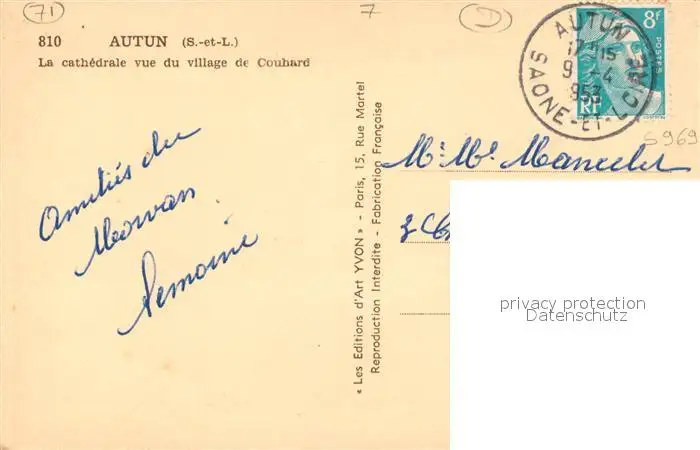 71
7
D
810 AUTUN (S.-et-L.)
La cathédrale vue du village de Couhard
Amitiés du
Morvan
Lemoine
« Les Editions d'Art YVON » - Paris, 15, Rue Martel
Reproduction Interdite - Fabrication Française
AUTUN
17H15
9 -4
953
SAONE-ET-LOIRE
8F
POSTES
RF
S969
Mr. Me. Mancelet
privacy protection
Datenschutz